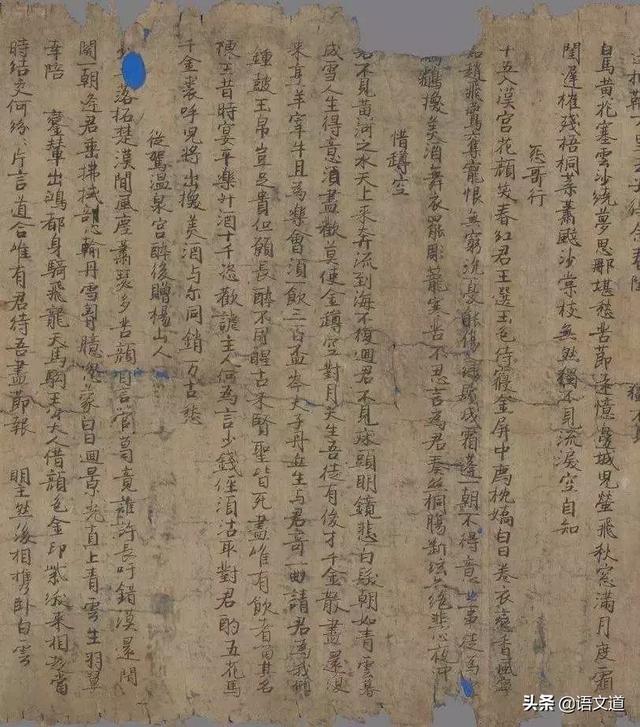 白馬黃花塞雲沙繞夢思那堪愁苦節遠憶邊城兒螢飛秋窓滿月度霜
閨遲摧殘梧桐葉蕭颯沙棠枝無然獨不見流淚空自知
怨哥行
十五入漢宮花顏笑春紅君王選玉色侍寢金屏中薦枕嬌白日卷衣戀香風
趙飛鷰奪寵恨無窮沉憂能傷鬢成霜蓬一朝不得意世事徒為
鷫換美酒舞衣罷雕籠寒苦不忍言為君奏絲桐腸斷絃亦絕悲心夜忡
惜罇空
君不見黃河之水天上來奔流到海不復迴君不見床頭明鏡悲白髮朝如青雲暮
成雪人生得意須盡歡莫使金罇空對月天生吾徒有俊才千金散盡還復
來烹羊宰牛且為樂會須飲三百盃岑夫子丹丘生与君哥一曲請君為我傾
鍾皷玉帛豈足貴但願長醉不用醒古來賢聖皆死盡唯有飲者留其名
陳王昔時宴平樂斗酒十千恣歡謔主人何為言少錢徑須沽取對君酌五花馬
千金裘呼兒將出換美酒与尓同銷万古愁
從駕温泉宮醉後贈楊山人
落拓楚漢間風塵蕭瑟多苦顏自言管葛竟誰許長吁錯漠還閉
關一朝逢君垂拂拭剖心輸丹雪胸臆忽蒙白日迴景光直上青雲生羽翼
幸陪鸞輦出鴻都身騎飛龍天馬駒王公大人借顏色金印紫綬來相趨當
時結交何紛紛片言道合唯有君待吾盡節報明主然後相攜臥白雲
头条 @语文道